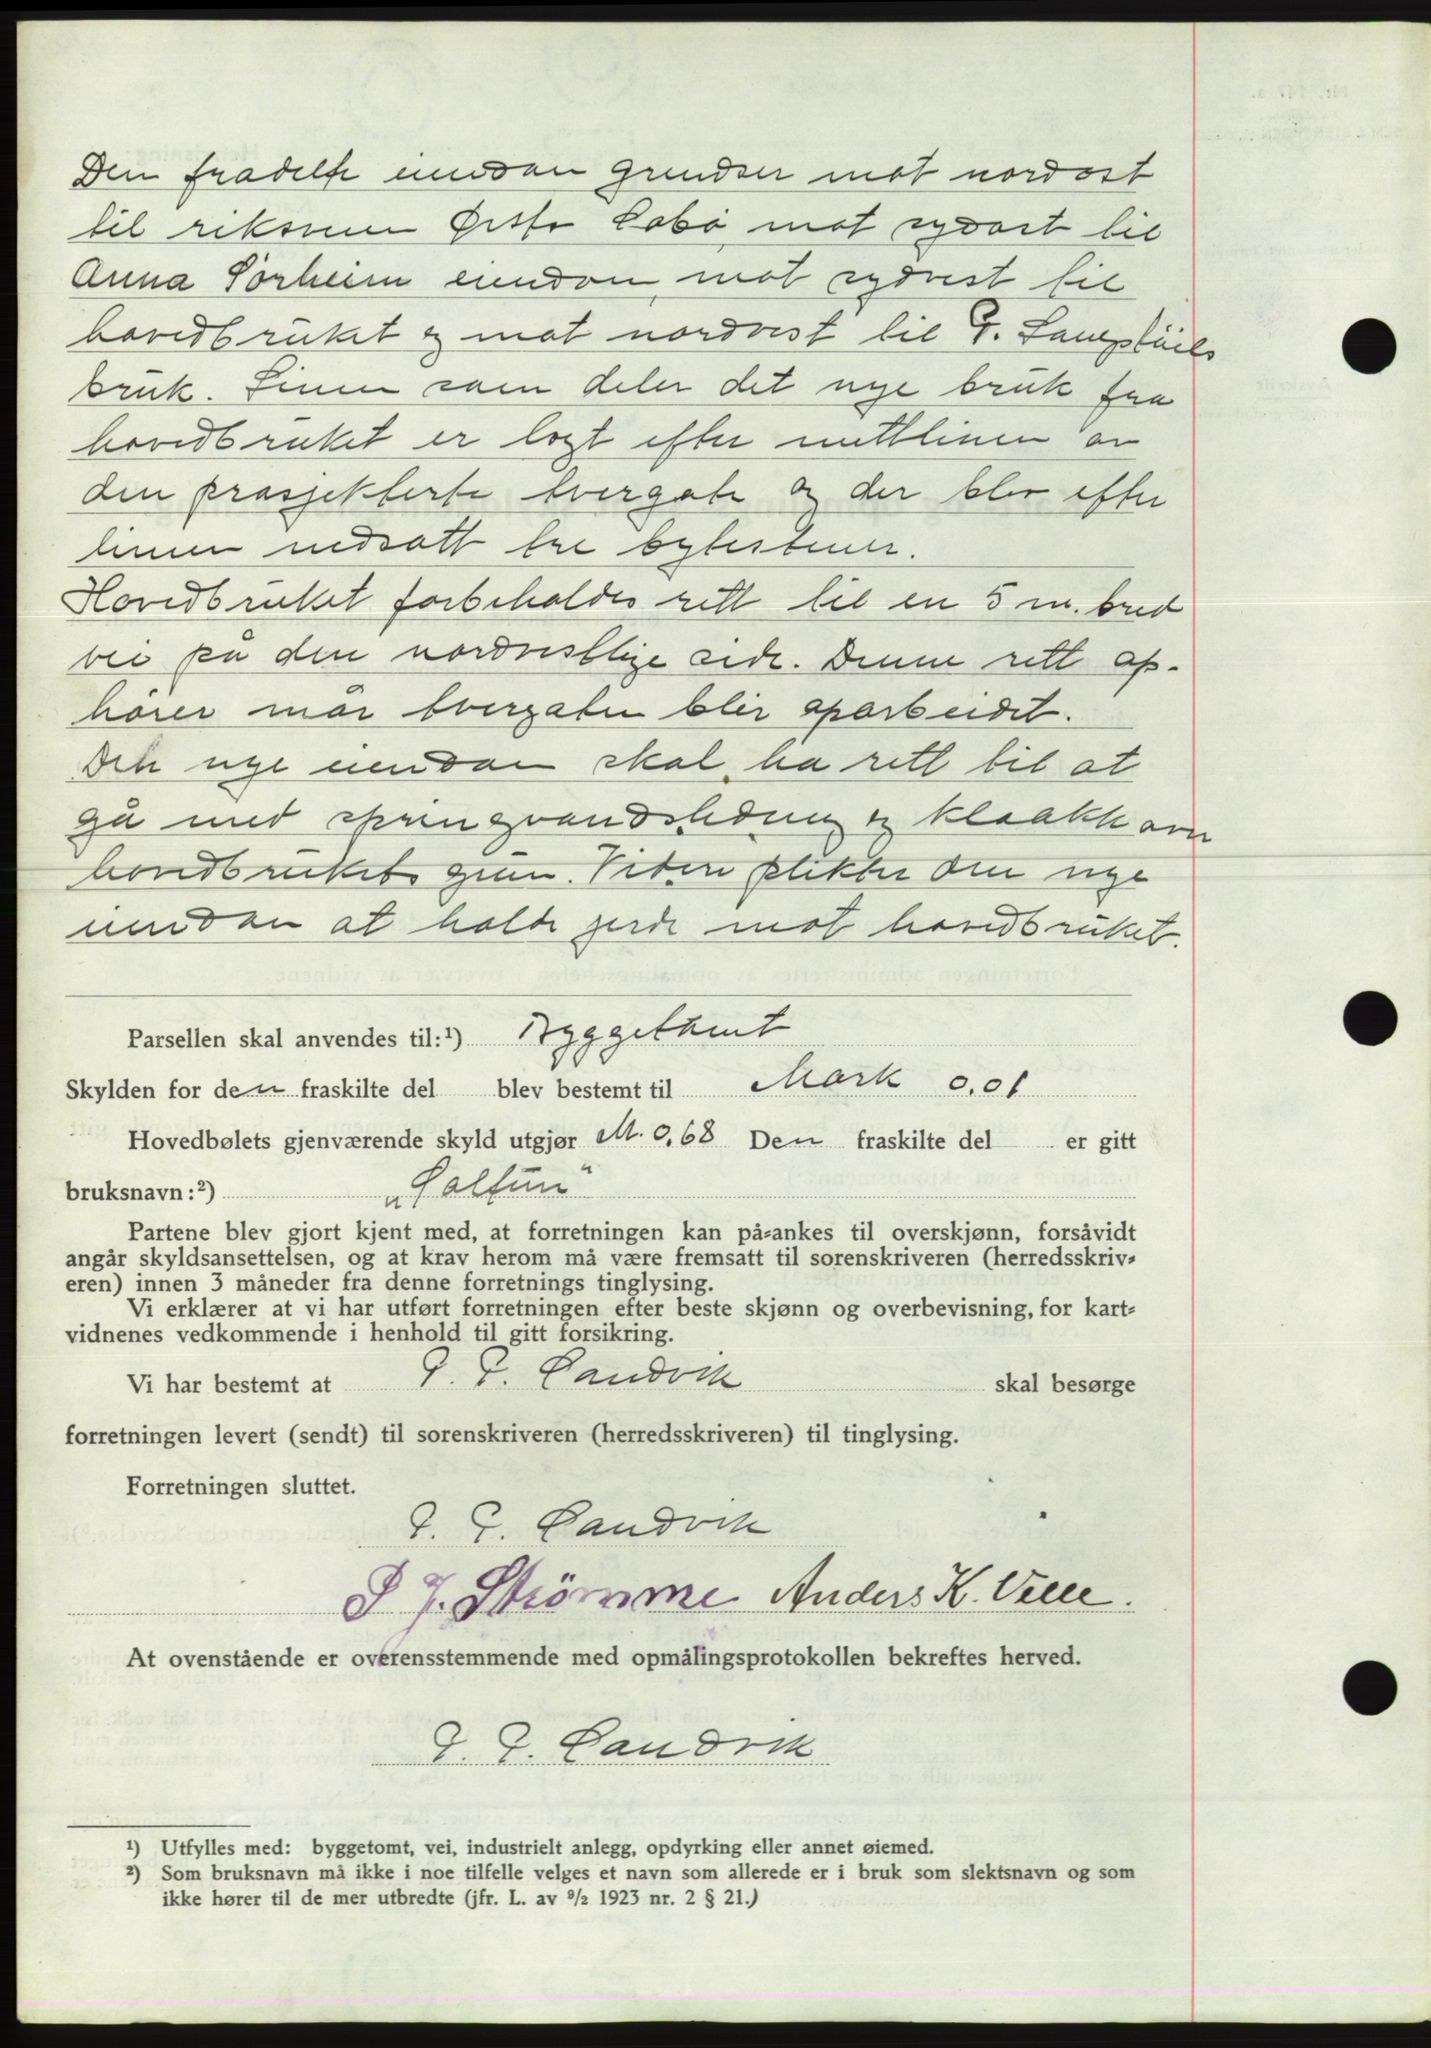 Den fradelte eiendom grendser mot nordost
til riksveien Ørsta Sæbø, mot sydost til
Anna Sørheim eiendom, mot sydvest til
hovedbruket og mot nordvest til P.
bruk. Linen som deler det nye bruk fra
hovedbruket er lagt efter mittlinen av
den prosjekterte tvergate og der blev efter
linen nedsatt tre bytestener.
Hovedbruket forbeholdes rett til en 5 m. bred
vei på den nordvestlige side. Denne rett op-
hører når tvergaten blir oparbeidet.
Den nye eiendom skal ha rett til at
gå med springvandsledning og kloakk over
hovedbrukets grun. Videre plikter den nye
eiendom at holde gjerde mot hovedbruket.
Parsellen skal anvendes til:¹) Byggetomt
Skylden for den fraskilte del blev bestemt til Mark 0.01
Hovedbølets gjenværende skyld utgjør M. 0,68 Den fraskilte del er gitt
bruksnavn:²) „Soltun"
Partene blev gjort kjent med, at forretningen kan på-ankes til overskjønn, forsåvidt
angår skyldsansettelsen, og at krav herom må være fremsatt til sorenskriveren (herredsskriv-
eren) innen 3 måneder fra denne forretnings tinglysing.
Vi erklærer at vi har utført forretningen efter beste skjønn og overbevisning, for kart-
vidnenes vedkommende i henhold til gitt forsikring.
Vi har bestemt at P. P. Sandvik skal besørge
forretningen levert (sendt) til sorenskriveren (herredsskriveren) til tinglysing.
Forretningen sluttet.
P. P. Sandvik
P J. Strømme Anders K. Velle.
At ovenstående er overensstemmende med opmålingsprotokollen bekreftes herved.
P. P. Sandvik
¹) Utfylles med: byggetomt, vei, industrielt anlegg, opdyrking eller annet øiemed.
²) Som bruksnavn må ikke i noe tilfelle velges et navn som allerede er i bruk som slektsnavn og som
ikke hører til de mer utbredte (jfr. L. av 9/2 1923 nr. 2 § 21.)